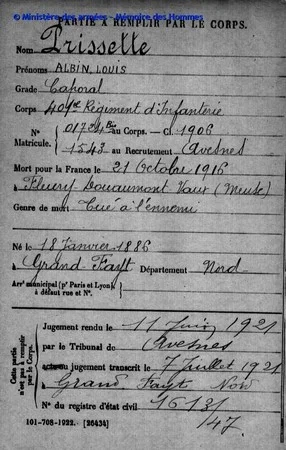 © Ministère des armées - Mémoire des Hommes
PARTIE À REMPLIR PAR LE CORPS.
Nom Prissette
Prénoms ALBIN LOUIS
Grade Caporal
Corps 401e Régiment d'Infanterie
N° 01724 au Corps. — Cl. 1906
Matricule. 1543 au Recrutement Avesnes
Mort pour la France le 21 Octobre 1916
à Fleury Douaumont Vaux (Meuse)
Genre de mort Tué à l'ennemi
Né le 18 Janvier 1886
à Grand Fayt Département Nord
Arrt municipal (pr Paris et Lyon),
à défaut rue et N°.
Cette partie
n'est pas à remplir
par le Corps.
Jugement rendu le 11 Juin 1921
par le Tribunal de Avesnes
acte ou jugement transcrit le 7 Juillet 1921
à Grand Fayt Nord
N° du registre d'état civil 1613/
/47
101-708-1922. [26434]